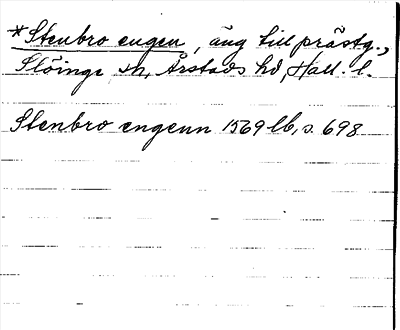 *Stenbro engen, äng till prästg.,
Slöinge sn, Årstads hd, Hall. l.
Stenbro engenn 1569 lb, s. 698